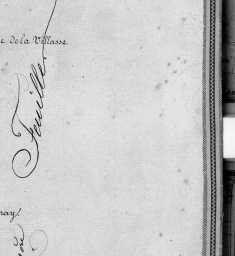 e de la Villasse
Feuille
nay/